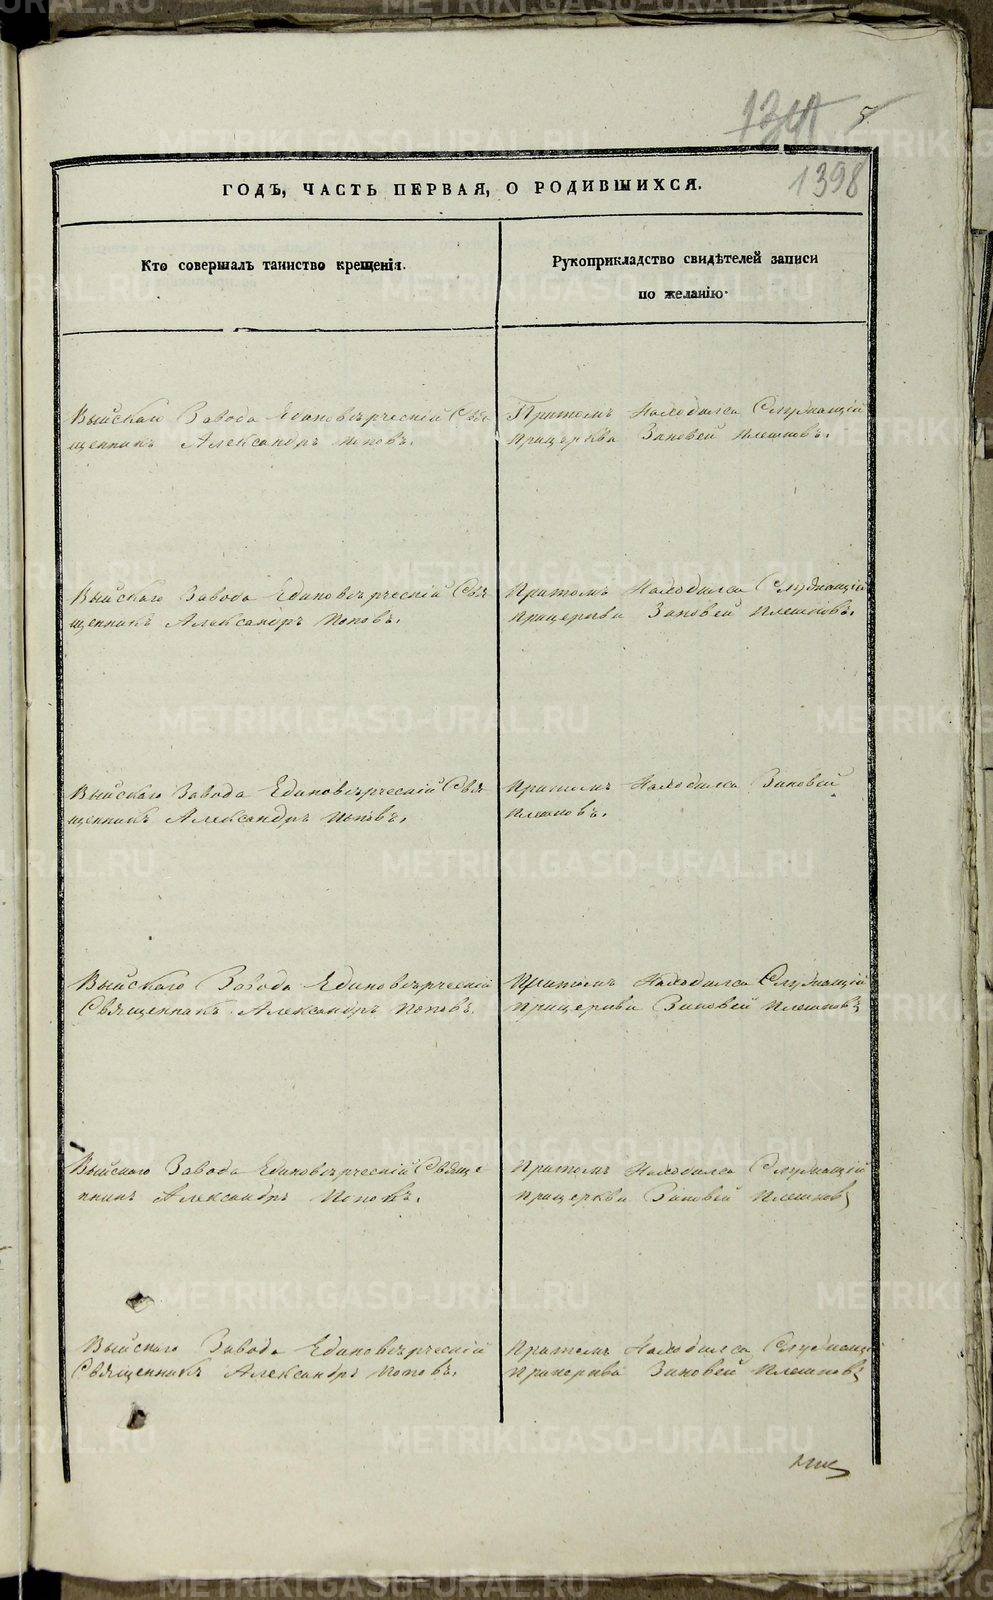 5
1398
ГОДЪ, ЧАСТЬ ПЕРВАЯ, О РОДИВШИХСЯ.
Кто совершалъ таинство крещенія.
Рукоприкладство свидѣтелей записи
по желанію.
Выйскаго Завода Единовѣрческій Свя
щенникъ Александръ Поповъ.
Притомъ Находился Служащій
прицерква Зиновей Плешковъ.
Выйскаго Завода Единовѣрческій Свя
щенникъ Александръ Поповъ.
Притомъ Находился Служащій
прицеркви Зиновей Плешковъ.
Выйскаго Завода Единовѣрческій Свя
щенникъ Александръ Поповъ.
Притомъ Находился Зиновей
Плешковъ.
Выйскаго Завода Единовѣрческій
Священникъ Александръ Поповъ.
Притомъ Находился Служащій
прицеркви Зиновей Плешковъ
Выйскаго Завода Единовѣрческій Свяще
нникъ Александръ Поповъ.
Притомъ Находился Служащій
прицерква Зиновей Плешковъ
Выйскаго Завода Единовѣрческій
Священникъ Александръ Поповъ.
Притомъ Находился Служащій
Зиновей Плешковъ
METRIKI.GASO-URAL.RU